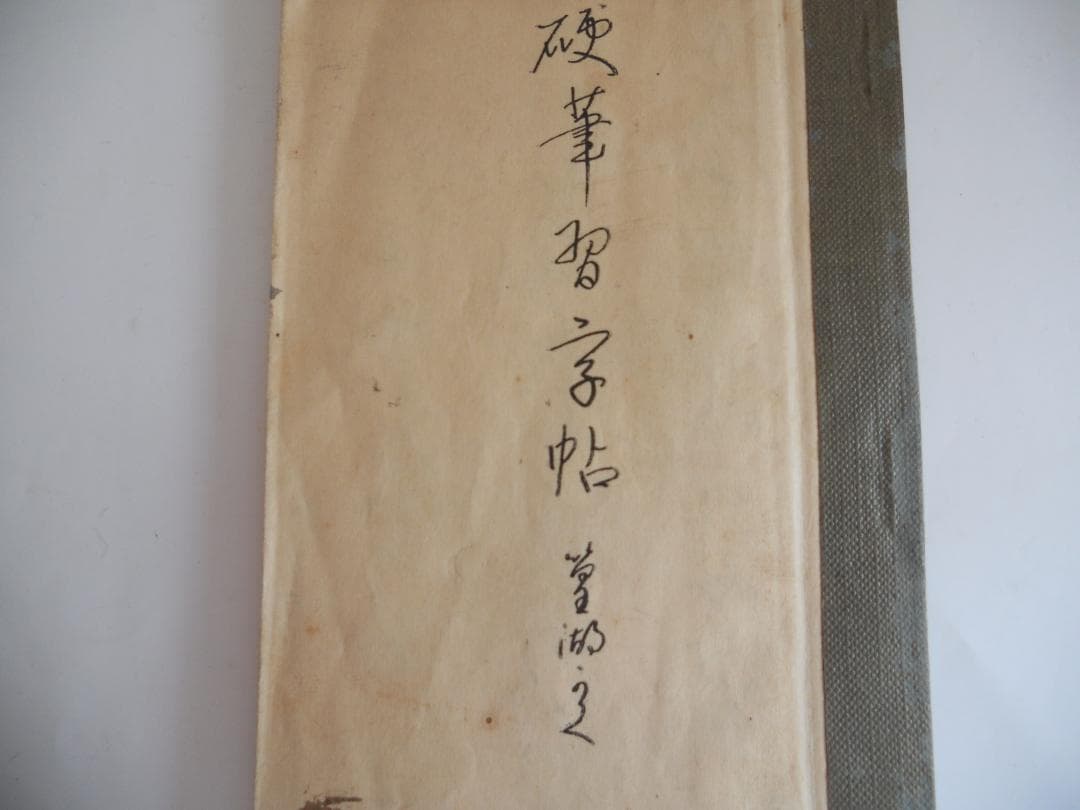 硬筆習字帖 篁湖之